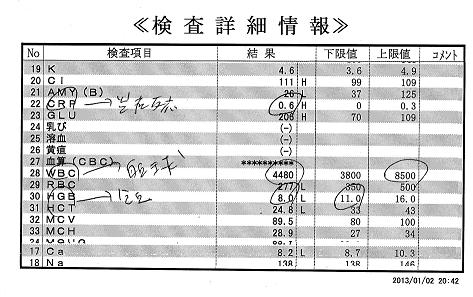 ≪検査詳細情報≫
No 検査項目 結果 下限値 上限値 コメント
19 K 4.6 3.6 4.9
20 Cl 111 H 99 109
21 AMY(B) 26 L 37 125
22 CRP 0.6 H 0 0.3
23 GLU 206 H 70 109
24 乳び (-)
25 溶血 (-)
26 黄疸 (-)
27 血算(CBC) **********
28 WBC 白血球 4480 3800 8500
29 RBC 277 L 350 500
30 HGB 8.0 L 11.0 16.0
31 HCT 24.8 L 33 43
32 MCV 89.5 80 100
33 MCH 28.9 27 34
17 Ca 8.2 L 8.7 10.3
18 Na 138 138 146
2013/01/02 20:42